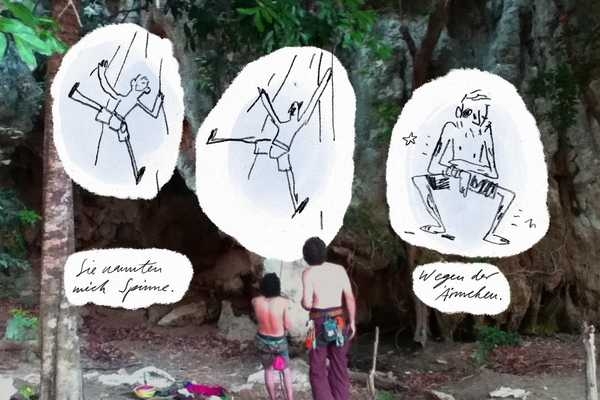 Sie nannten
mich Spinne.
Wegen der
Ärmchen.